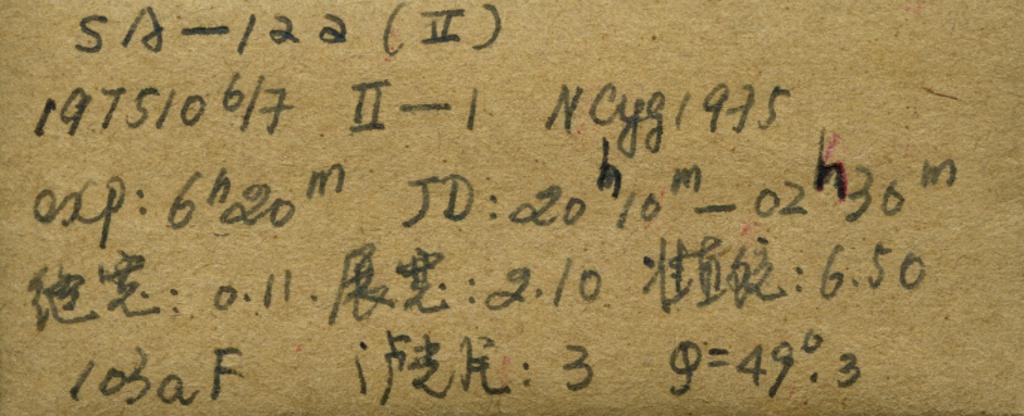 SA-122 (II)
197510 6/7 II-1 NCyg1975
exp: 6ʰ20ᵐ JD: 20ʰ10ᵐ-02ʰ30ᵐ
缝宽: 0.11. 展宽: 2.10 准直镜: 6.50
103aF 滤光片: 3 φ=49°.3